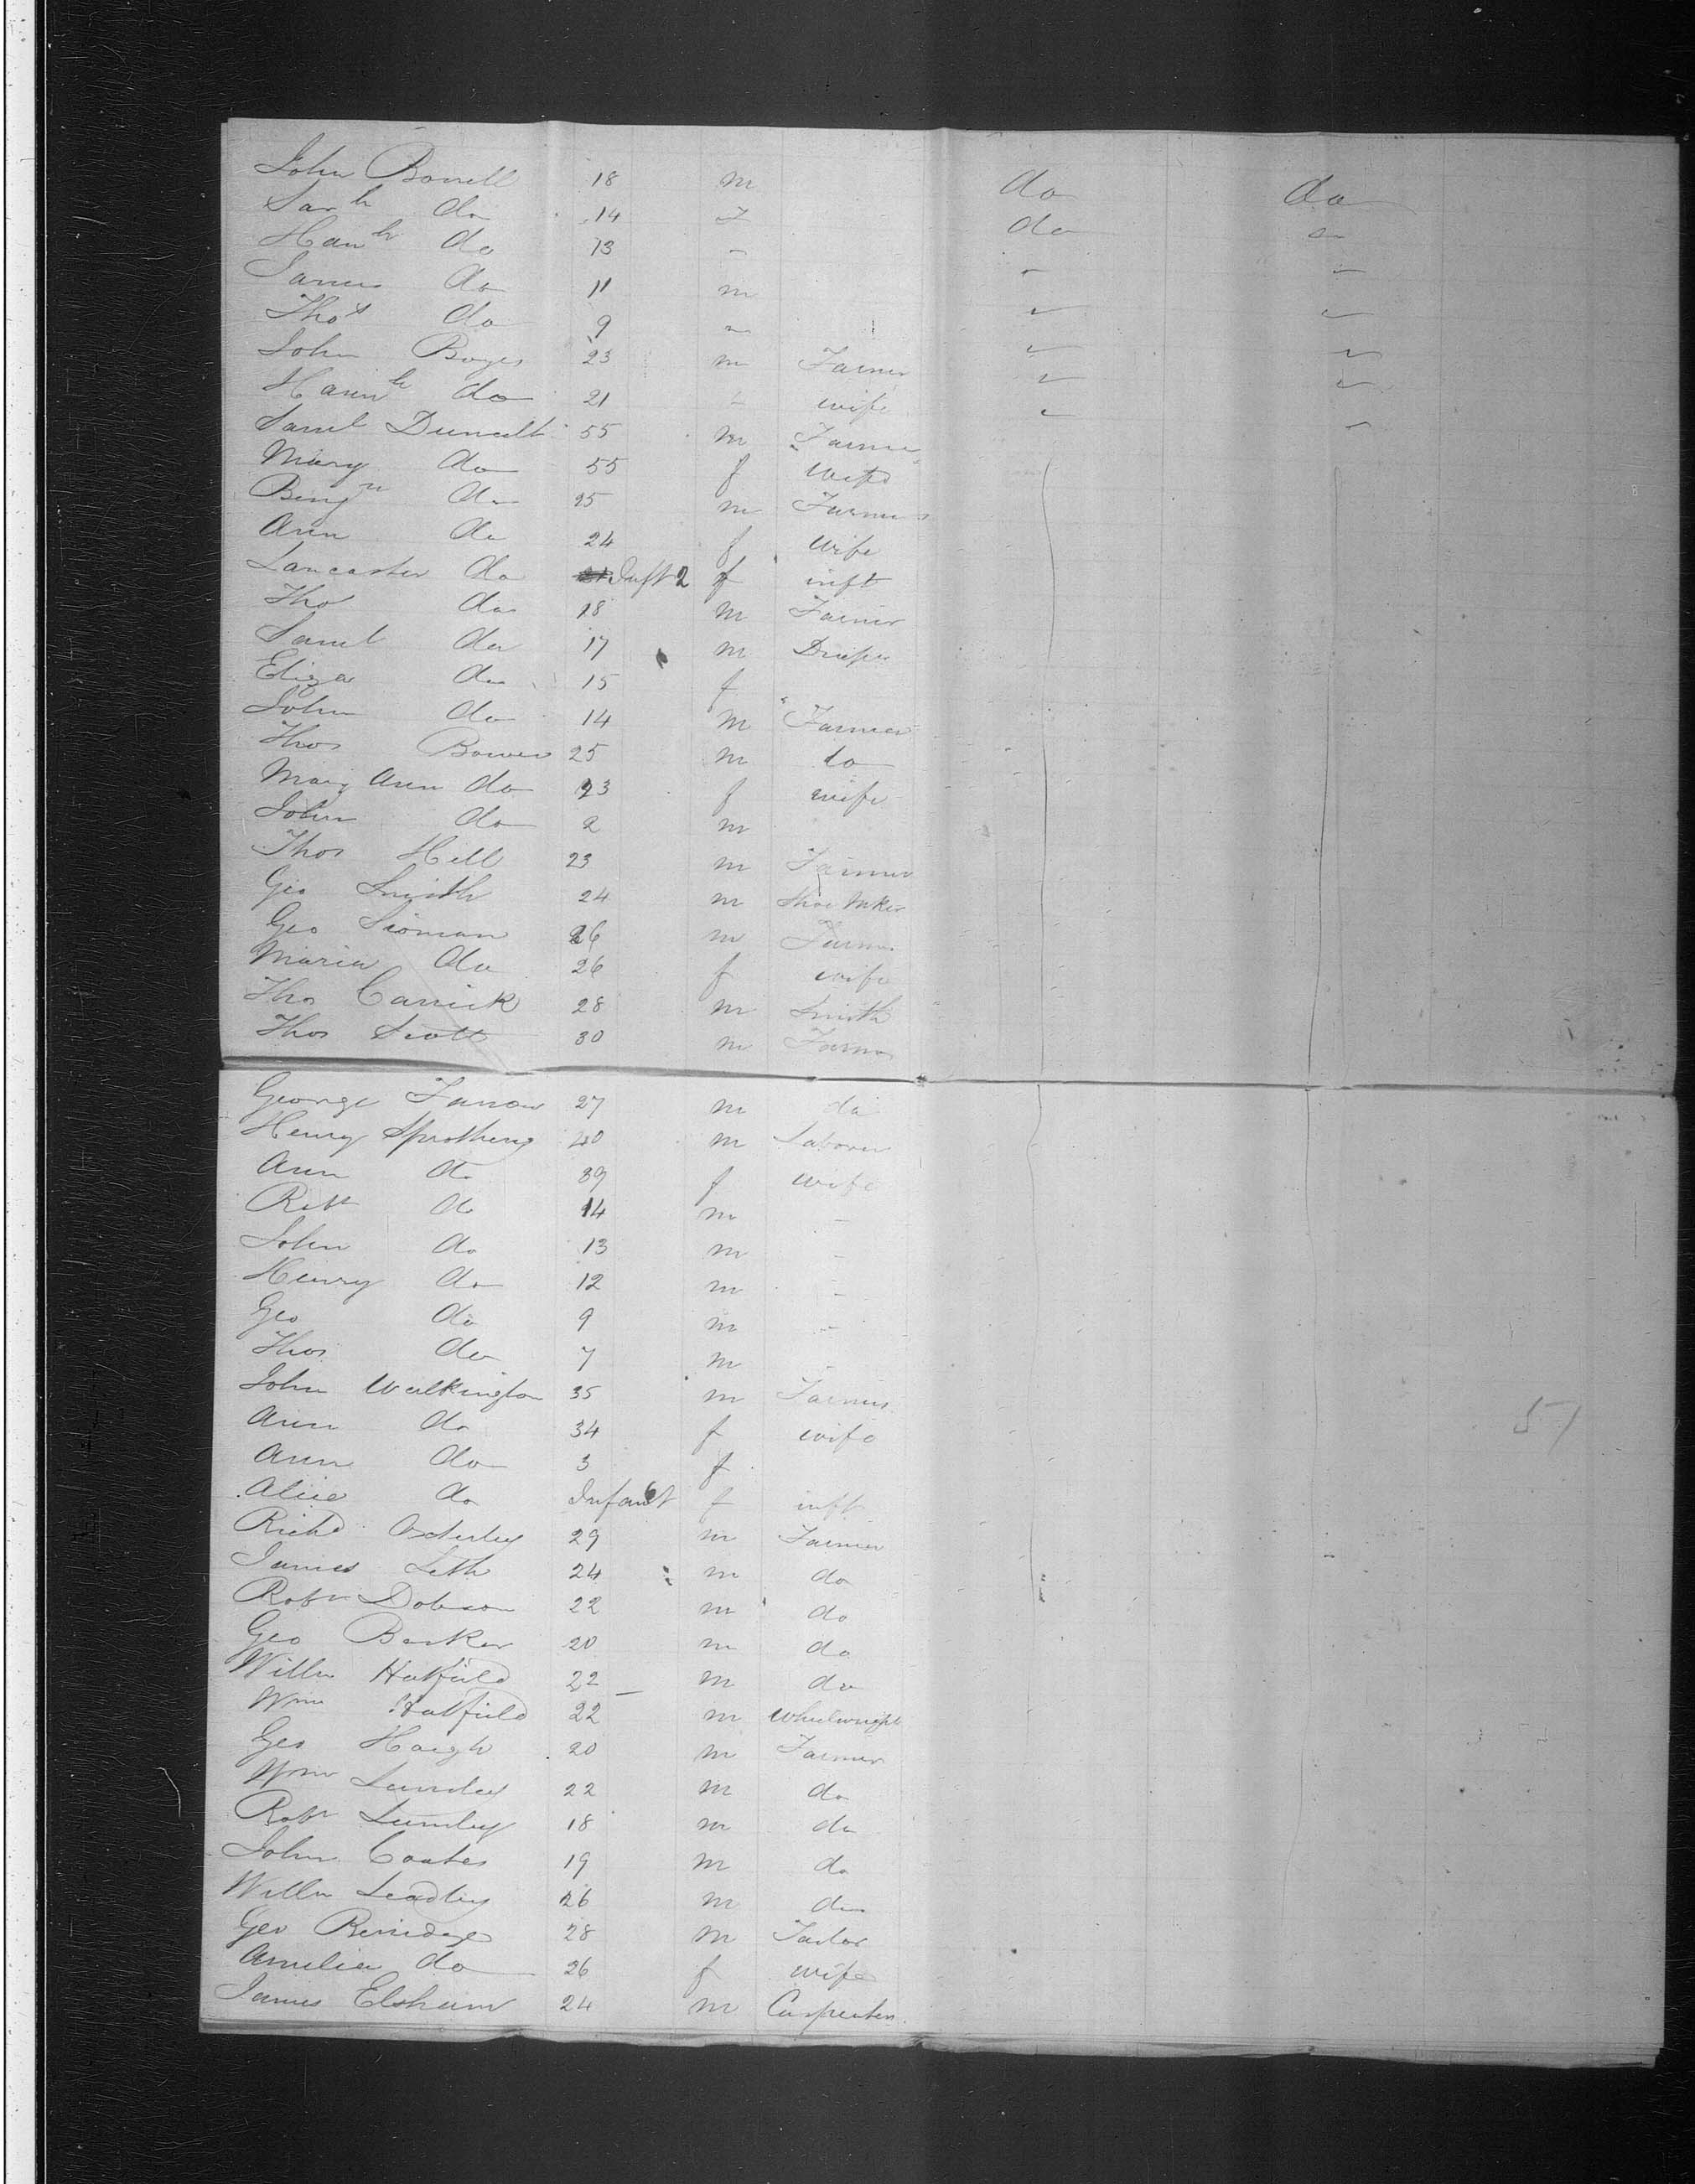 John Bonell 18 m do do
Sarh do 14 f do do
Hanh do 13 -
James do 11 m
Thos do 9
John Boyes 23 m Farmer
Hannh do 21 wife
Saml 55 m Farmer
Mary do 55 f wife
Benjn do 25 m Farmer
Ann do 24 f wife
Lancaster do Inft 2 f inft
Tho do 18 m Farmer
Saml do 17 m Draper
Eliza do 15 f
John do 14 m Farmer
Thos Bower 25 m do
Mary Ann do 23 f wife
John do 2 m
Thos Hill 23 m Farmer
Geo Smith 24 m Shoe Mker
Geo Sioman 26 m Farmer
Maria do 26 f wife
Thos Carrick 28 m Smith
Thos Scott 30 m Farmer
George Farrow 27 m do
Henry 40 m Laborer
Ann do 39 f wife
Robt do 14 m -
John do 13 m -
Henry do 12 m -
Geo do 9 m -
Thos do 7 m -
John Walkington 35 m Farmer
Ann do 34 f wife
Ann do 3 f
Alice do Infant 6 f inft
Richd 29 m Farmer
James Leth 24 m do
Robt Dobson 22 m do
Geo Barker 20 m do
Willm Hatfield 22 m do
Wm Hatfield 22 m Wheelwright
Geo Haigh 20 m Farmer
Wm Lumley 22 m do
Robt Lumley 18 m do
John Coates 19 m do
Willm Leadley 26 m do
Geo 28 m Tailor
Amelia do 26 f wife
James Elsham 24 m Carpenter
51